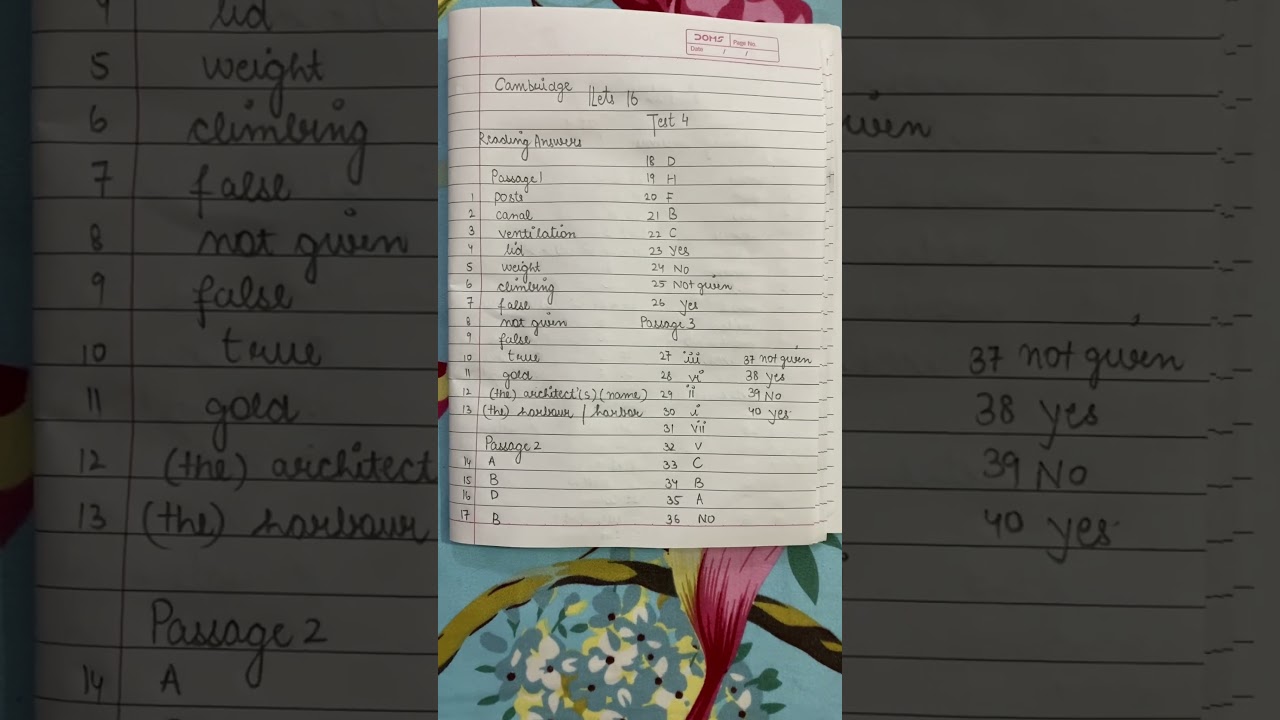 DOMS
Page No.
Date / /
Cambridge Ilets 16
Test 4
Reading Answers
Passage 1
1 posts
2 canal
3 ventilation
4 lid
5 weight
6 climbing
7 false
8 not given
9 false
10 true
11 gold
12 (the) architect'(s) (name)
13 (the) harbour / harbor
Passage 2
14 A
15 B
16 D
17 B
18 D
19 H
20 F
21 B
22 C
23 Yes
24 No
25 Not given
26 Yes
Passage 3
27 iii
28 vi
29 ii
30 i
31 vii
32 V
33 C
34 B
35 A
36 NO
37 not given
38 yes
39 No
40 yes
4 lid
5 weight
6 climbing
7 false
8 not given
9 false
10 true
11 gold
12 (the) architect
13 (the) harbour
Passage 2
14 A
37 not given
38 yes
39 No
40 yes